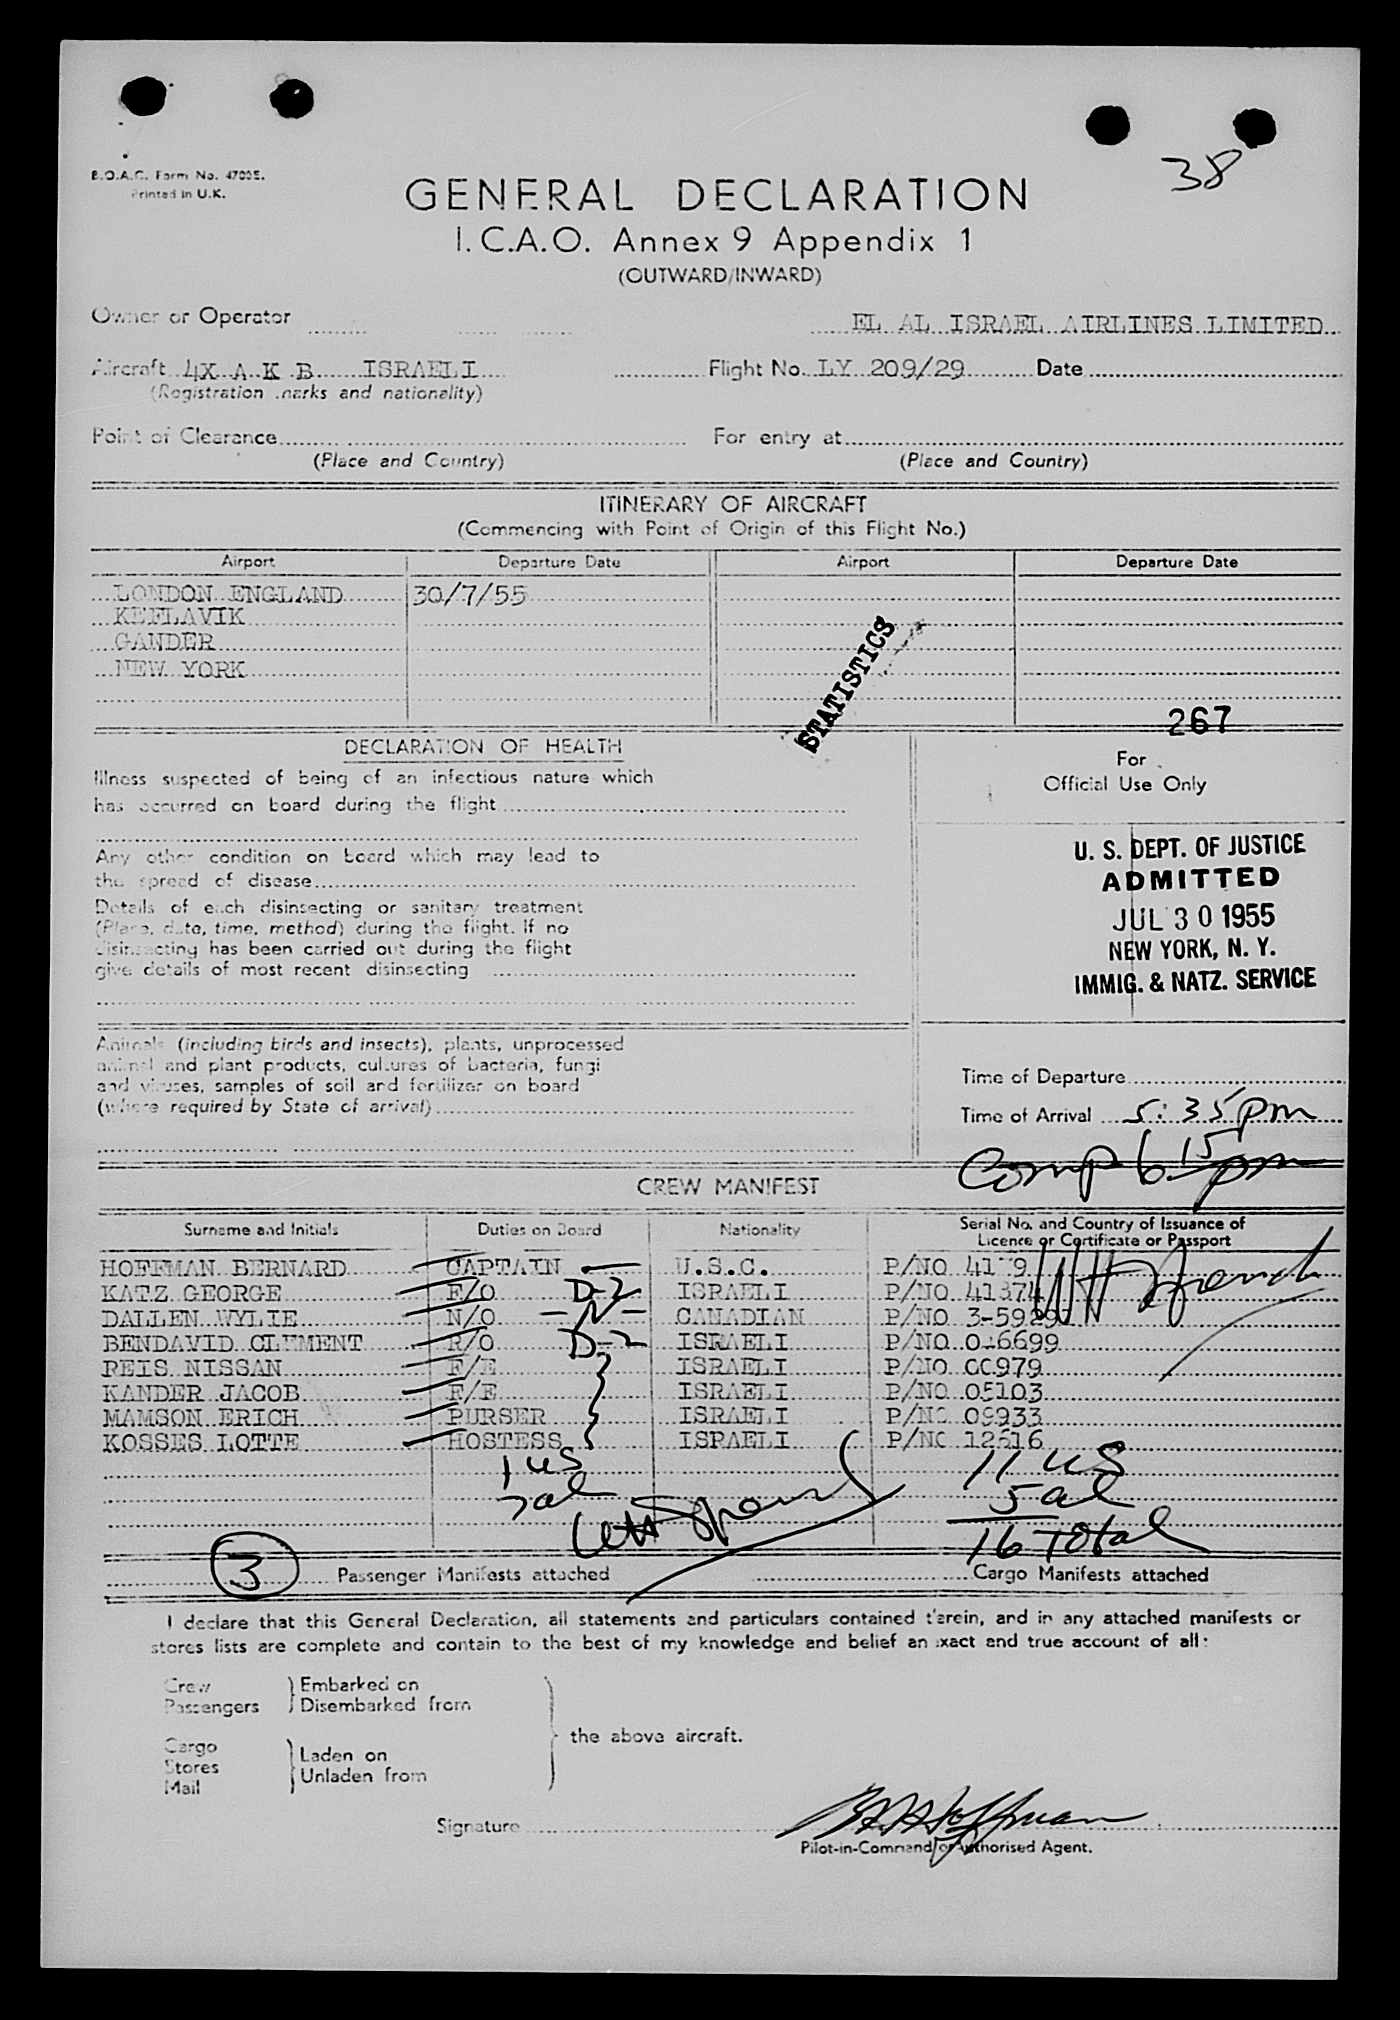 38
B.O.A.C. Form No. 4700E.
Printed in U.K.
GENERAL DECLARATION
I.C.A.O. Annex 9 Appendix 1
(OUTWARD/INWARD)
Owner or Operator EL AL ISRAEL AIRLINES LIMITED
Aircraft 4X A K B ISRAELI Flight No. LY 209/29 Date
(Registration marks and nationality)
Point of Clearance For entry at
(Place and Country) (Place and Country)
ITINERARY OF AIRCRAFT
(Commencing with Point of Origin of this Flight No.)
Airport Departure Date Airport Departure Date
LONDON ENGLAND 30/7/55
KEFLAVIK
GANDER
NEW YORK
STATISTICS
267
DECLARATION OF HEALTH
Illness suspected of being of an infectious nature which
has occurred on board during the flight
Any other condition on board which may lead to
the spread of disease
Details of each disinsecting or sanitary treatment
(Place, date, time, method) during the flight. If no
disinsecting has been carried out during the flight
give details of most recent disinsecting
For
Official Use Only
U. S. DEPT. OF JUSTICE
ADMITTED
JUL 30 1955
NEW YORK, N. Y.
IMMIG. & NATZ. SERVICE
Animals (including birds and insects), plants, unprocessed
animal and plant products, cultures of bacteria, fungi
and viruses, samples of soil and fertilizer on board
(where required by State of arrival)
Time of Departure
Time of Arrival 5:35pm
Comp 6 15 pm
CREW MANIFEST
Surname and Initials Duties on Board Nationality Serial No. and Country of Issuance of
Licence or Certificate or Passport
HOFFMAN BERNARD CAPTAIN U.S.C. P/NO
KATZ GEORGE F/O D-2 ISRAELI P/NO 41874
DALLEN WYLIE N/O -N- CANADIAN P/NO
BENDAVID CLEMENT R/O D-2 ISRAELI P/NO 06699
REIS NISSAN F/E ISRAELI P/NO 00979
KANDER JACOB F/E ISRAELI P/NO 05103
MAMSON ERICH PURSER ISRAELI P/NO 09933
KOSSES LOTTE HOSTESS ISRAELI P/NO 12616
1 US
7 al
11 US
5 al
16 Total
3 Passenger Manifests attached Cargo Manifests attached
I declare that this General Declaration, all statements and particulars contained therein, and in any attached manifests or
stores lists are complete and contain to the best of my knowledge and belief an exact and true account of all:
Crew
Passengers
Embarked on
Disembarked from
Cargo
Stores
Mail
Laden on
Unladen from
the above aircraft.
Signature
Pilot-in-Command/or Authorised Agent.